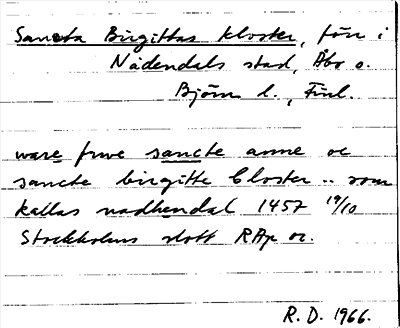 Sancta Birgittas kloster, förr i
Nådendals stad, Åbo o.
Björn l., Finl.
ware frwe sancte anne oc
sancte birgitte Closter .. som
kallas nadhendal 1457 19/10
Stockholms slott RAp or.
R. D. 1966.